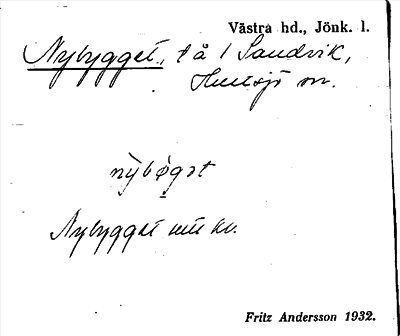 Västra hd., Jönk. l.
Nybygget, t å 1 Sandvik,
Hultsjö sn.
nỳbøgət
Nybygget utt av.
Fritz Andersson 1932.